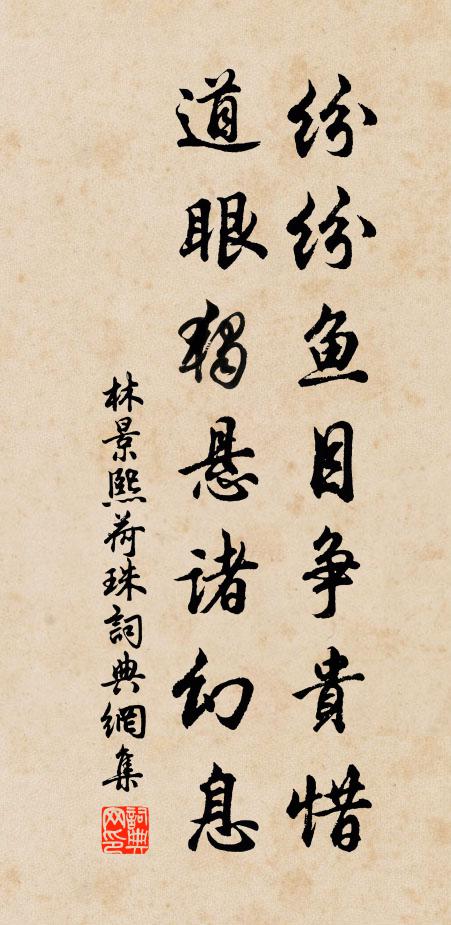 纷纷鱼目争貴惜
道眼独悬诸幻息
林景熙荷珠詞典網集
詞典网印